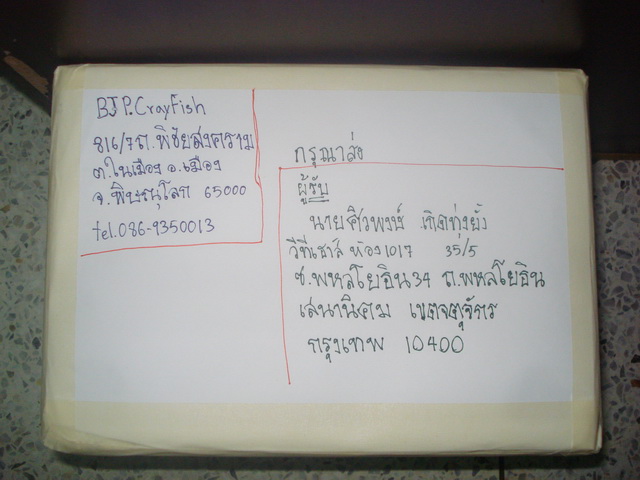 BJP.CrayFish
816/7 ถ.พิชัยสงคราม
ต.ในเมือง อ.เมือง
จ.พิษณุโลก 65000
tel.086-9350013
กรุณาส่ง
ผู้รับ
นายศิวพงษ์ เกิดทุ่งยั้ง
วีทีเฮาส์ ห้อง 1017 35/5
ซ.พหลโยธิน 34 ถ.พหลโยธิน
เสนานิคม เขตจตุจักร
กรุงเทพ 10400